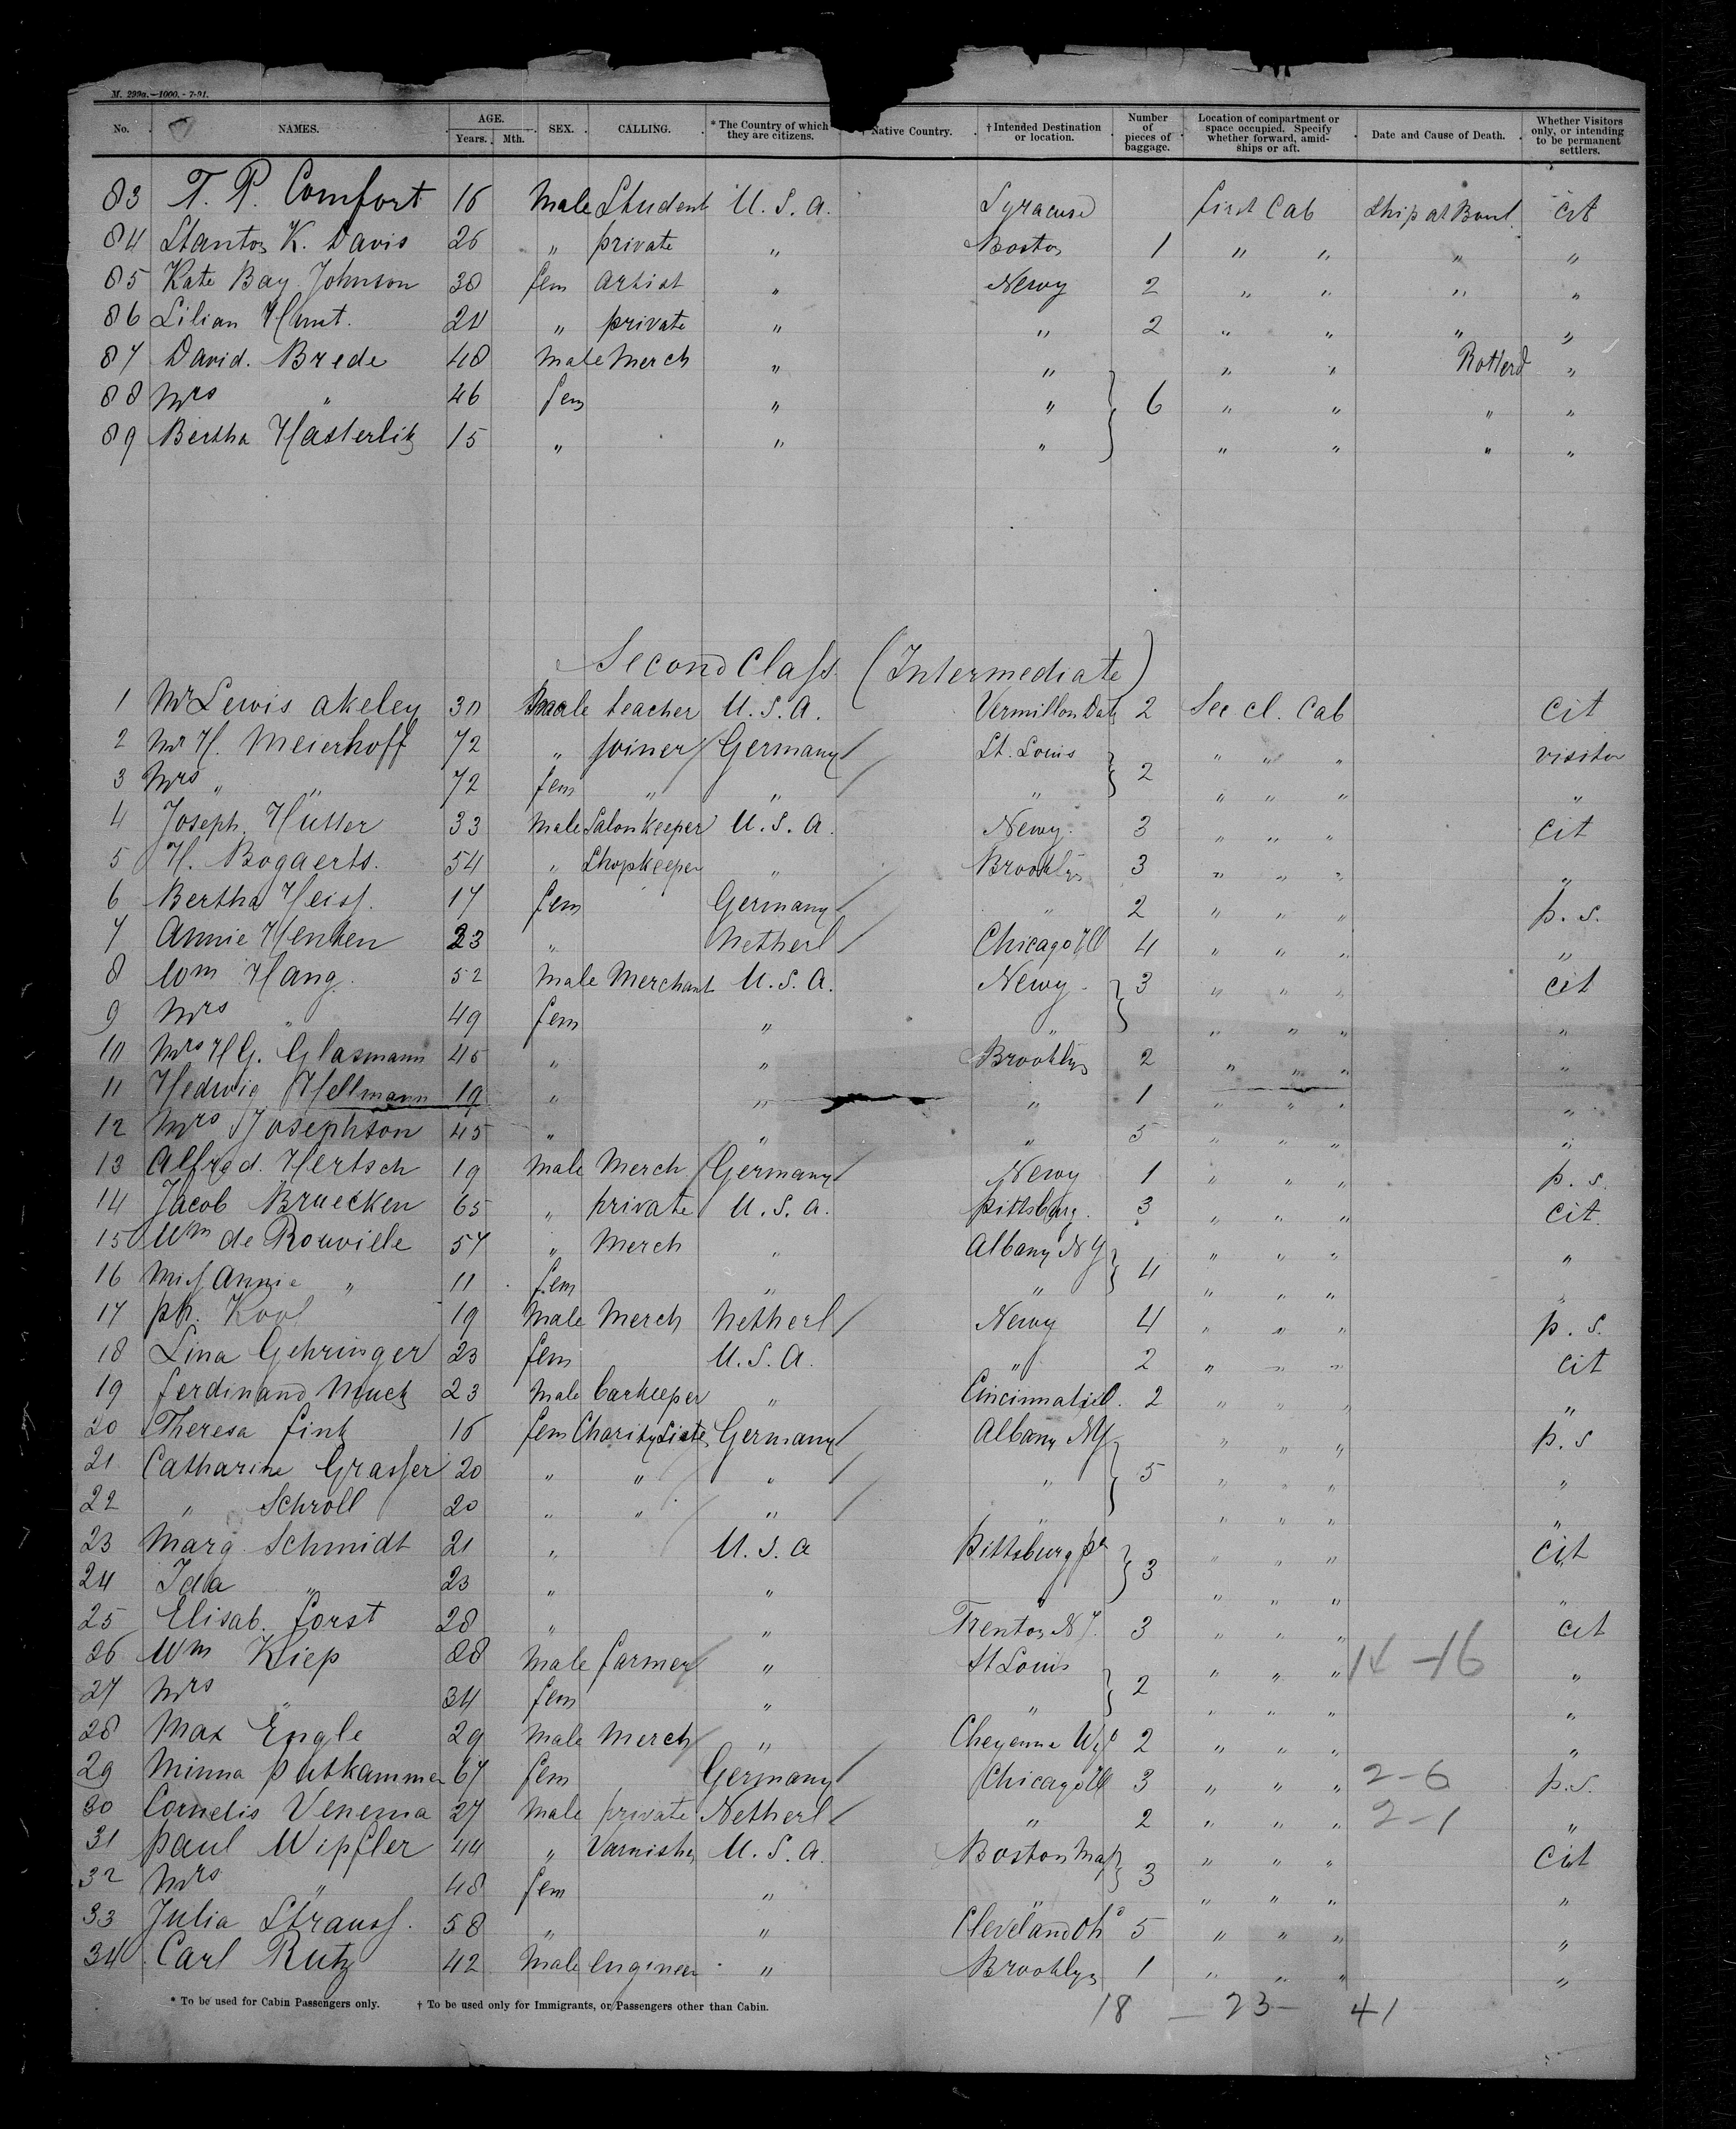 M. 299a.—1000.-7-91.
No. NAMES. AGE. Years. Mth. SEX. CALLING. * The Country of which they are citizens. Native Country. † Intended Destination or location. Number of pieces of baggage. Location of compartment or space occupied. Specify whether forward, amidships or aft. Date and Cause of Death. Whether Visitors only, or intending to be permanent settlers.
83 T. P. Comfort 16 Male Student U. S. A. Syracuse first Cab Ship at Boul. cit
84 Stanton K. Davis 26 " private " Boston 1 " " " "
85 Kate Bay Johnson 30 fem artist " Newy 2 " " " "
86 Lilian Hunt. 24 " private " " 2 " " " "
87 David. Brede 48 Male Merch " " " " Rotterd "
88 Mrs " 46 fem " " } 6 " " " "
89 Bertha Hasterlik 15 " " " " " " "
Second Class (Intermediate)
1 Mr Lewis Akeley 30 Male teacher U. S. A. Vermillon Dak 2 Sec cl. Cab cit
2 Mr H. Meierhoff 72 " joiner Germany / St. Louis } 2 " " " visitor
3 Mrs " " 72 fem " " / " " " " "
4 Joseph Hütter 33 Male Salonkeeper U. S. A. Newy. 3 " " " cit
5 H. Bogaerts. 54 " Shopkeeper " Brooklyn 3 " " " "
6 Bertha Heiss. 17 fem Germany / " 2 " " " p. s.
7 Annie Henken 23 " Netherl / Chicago Ill 4 " " " "
8 Wm Hang. 52 Male Merchant U. S. A. Newy. } 3 " " " cit
9 Mrs " 49 fem " " " " " "
10 Mrs H G. Glasmann 45 " " Brooklyn 2 " " " "
11 Hedwig Hellmann 19 " " " 1 " " " "
12 Mrs Josephson 45 " " " 5 " " " "
13 Alfred. Hertsch 19 Male Merch / Germany / Newy 1 " " " p. s.
14 Jacob Bruecken 65 " private U. S. A. Pittsburg. 3 " " " cit.
15 Wm de Rouville 57 " Merch " Albany N Y } 4 " " " "
16 Miss Annie " 11 fem " " " " " "
17 Ph. Kool 19 Male Merch Netherl / Newy 4 " " " p. s.
18 Lina Gehringer 23 fem U. S. A. " 2 " " " cit
19 Ferdinand Muck 23 Male Barkeeper " 2 " " " "
20 Theresa Fink 16 fem Charity Sister Germany / Albany NY } 5 " " " p. s
21 Catharine Grasser 20 " " " / " " " " "
22 " Schroll 20 " " " / " " " " "
23 Marg. Schmidt 21 " U. S. A Pittsburg Pa } 3 " " " cit
24 Ida " 23 " " " " " " "
25 Elisab. Forst 28 " " Trenton N J. 3 " " " cit
26 Wm Kiep 28 Male farmer / " St Louis } 2 " " " "
27 Mrs " 34 fem " " " " " "
28 Max Engle 29 Male Merch / " Cheyenne Wyo 2 " " " "
29 Minna Putkammer 67 fem Germany / Chicago Ill 3 " " " 2-6 p. s.
30 Cornelis Venema 27 Male private Netherl / " 2 " " " 2-1 "
31 Paul Wipfler 44 " Varnisher U. S. A. Boston Mass } 3 " " " cit
32 Mrs " 48 fem " " " " " "
33 Julia Strauss. 58 " " Cleveland Oh 5 " " " "
34 Carl Rutz 42 Male engineer " Brooklyn 1 " " " "
* To be used for Cabin Passengers only. † To be used only for Immigrants, or Passengers other than Cabin.
18 — 23 — 41